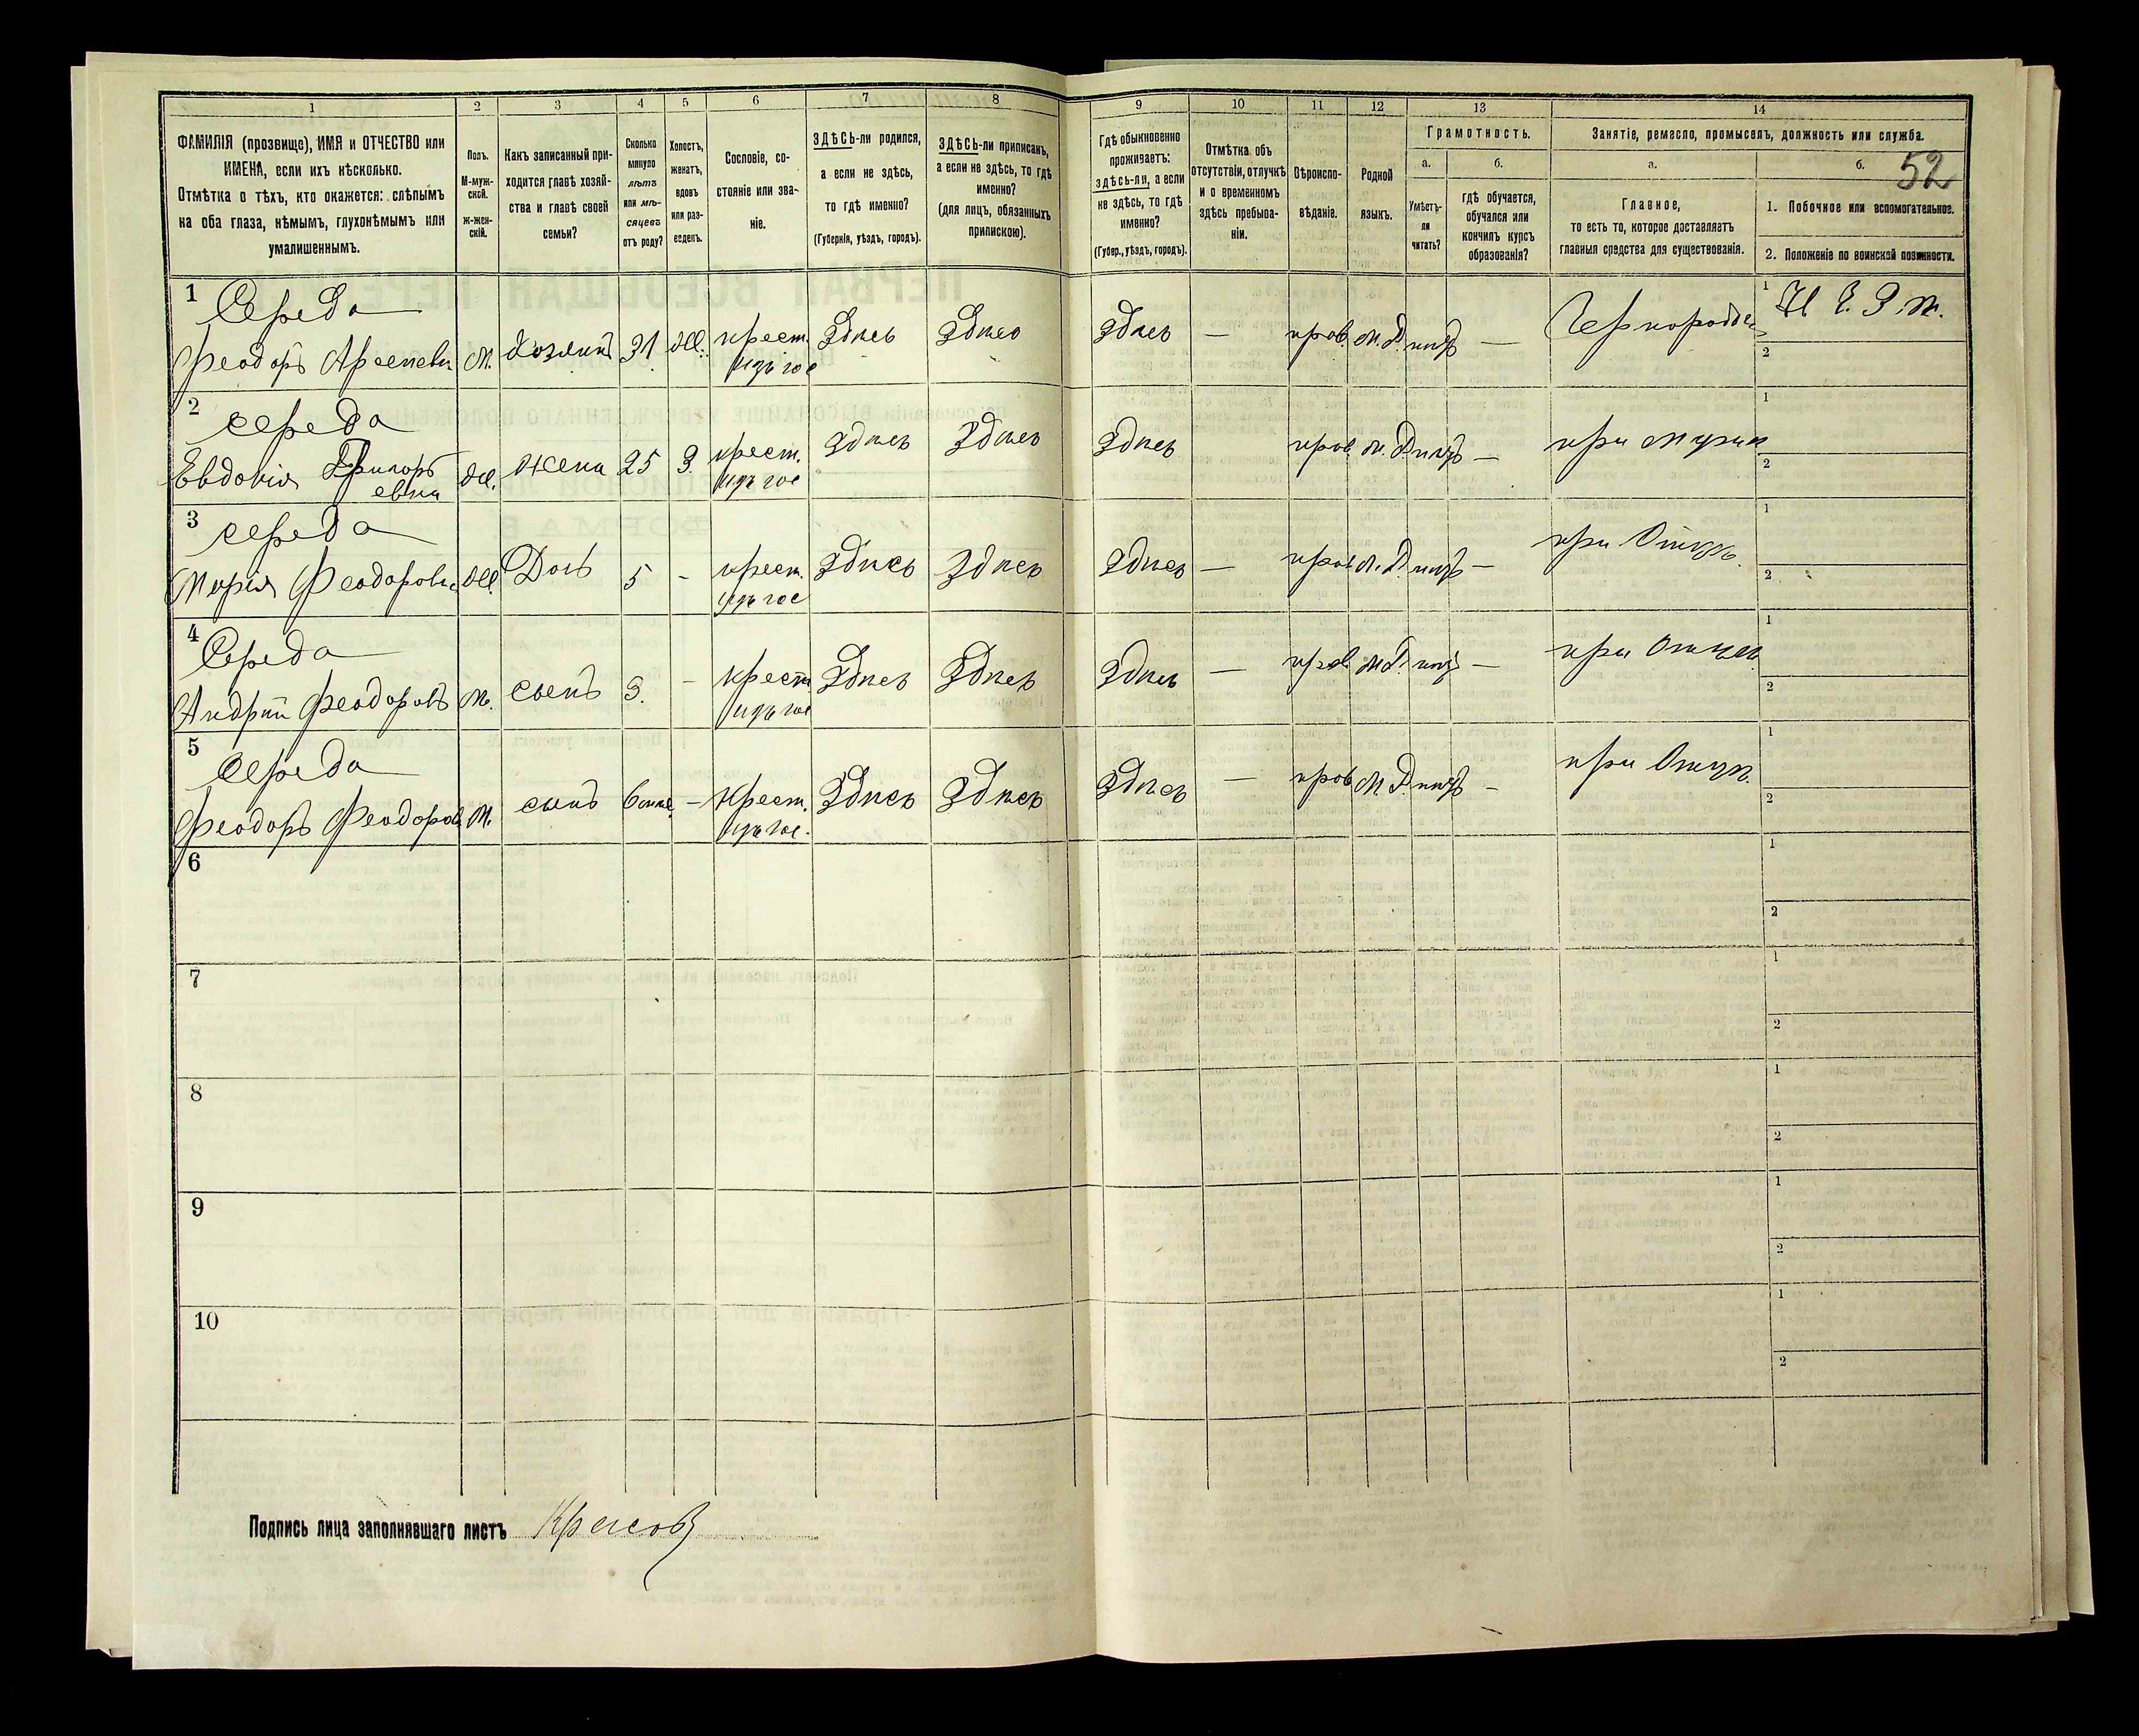 1 2 3 4 5 6 7 8 9 10 11 12 13 14
ФАМИЛІЯ (прозвище), ИМЯ и ОТЧЕСТВО или
ИМЕНА, если ихъ нѣсколько.
Отмѣтка о тѣхъ, кто окажется: слѣпымъ
на оба глаза, нѣмымъ, глухонѣмымъ или
умалишеннымъ.
Полъ.
М-муж-
ской.
ж-жен-
скій.
Какъ записанный при-
ходится главѣ хозяй-
ства и главѣ своей
семьи?
Сколько
минуло
лѣтъ
или мѣ-
сяцевъ
отъ роду?
Холостъ,
женатъ,
вдовъ
или раз-
веденъ.
Сословіе, со-
стояніе или зва-
ніе.
ЗДѢСЬ-ли родился,
а если не здѣсь,
то гдѣ именно?
(Губернія, уѣздъ, городъ).
ЗДѢСЬ-ли приписанъ,
а если не здѣсь, то гдѣ
именно?
(для лицъ, обязанныхъ
припискою).
Гдѣ обыкновенно
проживаетъ:
здѣсь-ли, а если
не здѣсь, то гдѣ
именно?
(Губер., уѣздъ, городъ).
Отмѣтка объ
отсутствіи, отлучкѣ
и о временномъ
здѣсь пребыва-
ніи.
Вѣроиспо-
вѣданіе.
Родной
языкъ.
Грамотность.
а.
Умѣетъ-
ли
читать?
б.
гдѣ обучается,
обучался или
кончилъ курсъ
образованія?
Занятіе, ремесло, промыселъ, должность или служба.
а.
Главное,
то есть то, которое доставляетъ
главныя средства для существованія.
б.
52
1. Побочное или вспомогательное.
2. Положеніе по воинской повинности.
1 Середа 1
Феодоръ М. Хозяинъ 31 Ж. крест. Здпсь Здпсь Здпсь — прав. М. —
2
2 середа 1
Евдокія Григорь Ж. жена 25 З. крест. здпсь Здпсь Здпсь прав. М. — при мужи
евна 2
3 середа 1
Марія Феодоровна Ж. Дочь 5 - крест. Здпсь Здпсь Здпсь — прав. М. — при Отцѣ.
2
4 Середа 1
Андрій Феодоровъ М. сынъ 3. - крест. Здпсь Здпсь Здпсь — прав. М. — при Отцѣ
2
5 Середа 1
Феодоръ Феодоровъ М. сынъ - Крест. Здпсь Здпсь Здпсь — прав. М. - при Отцѣ.
2
6 1
2
7 1
2
8 1
2
9 1
2
10 1
2
Подпись лица заполнявшаго листъ